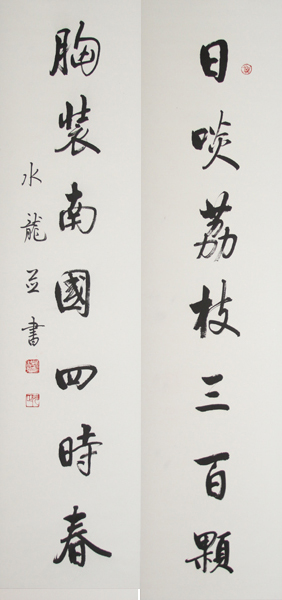 日啖荔枝三百顆
胸裝南國四時春
水龍並書